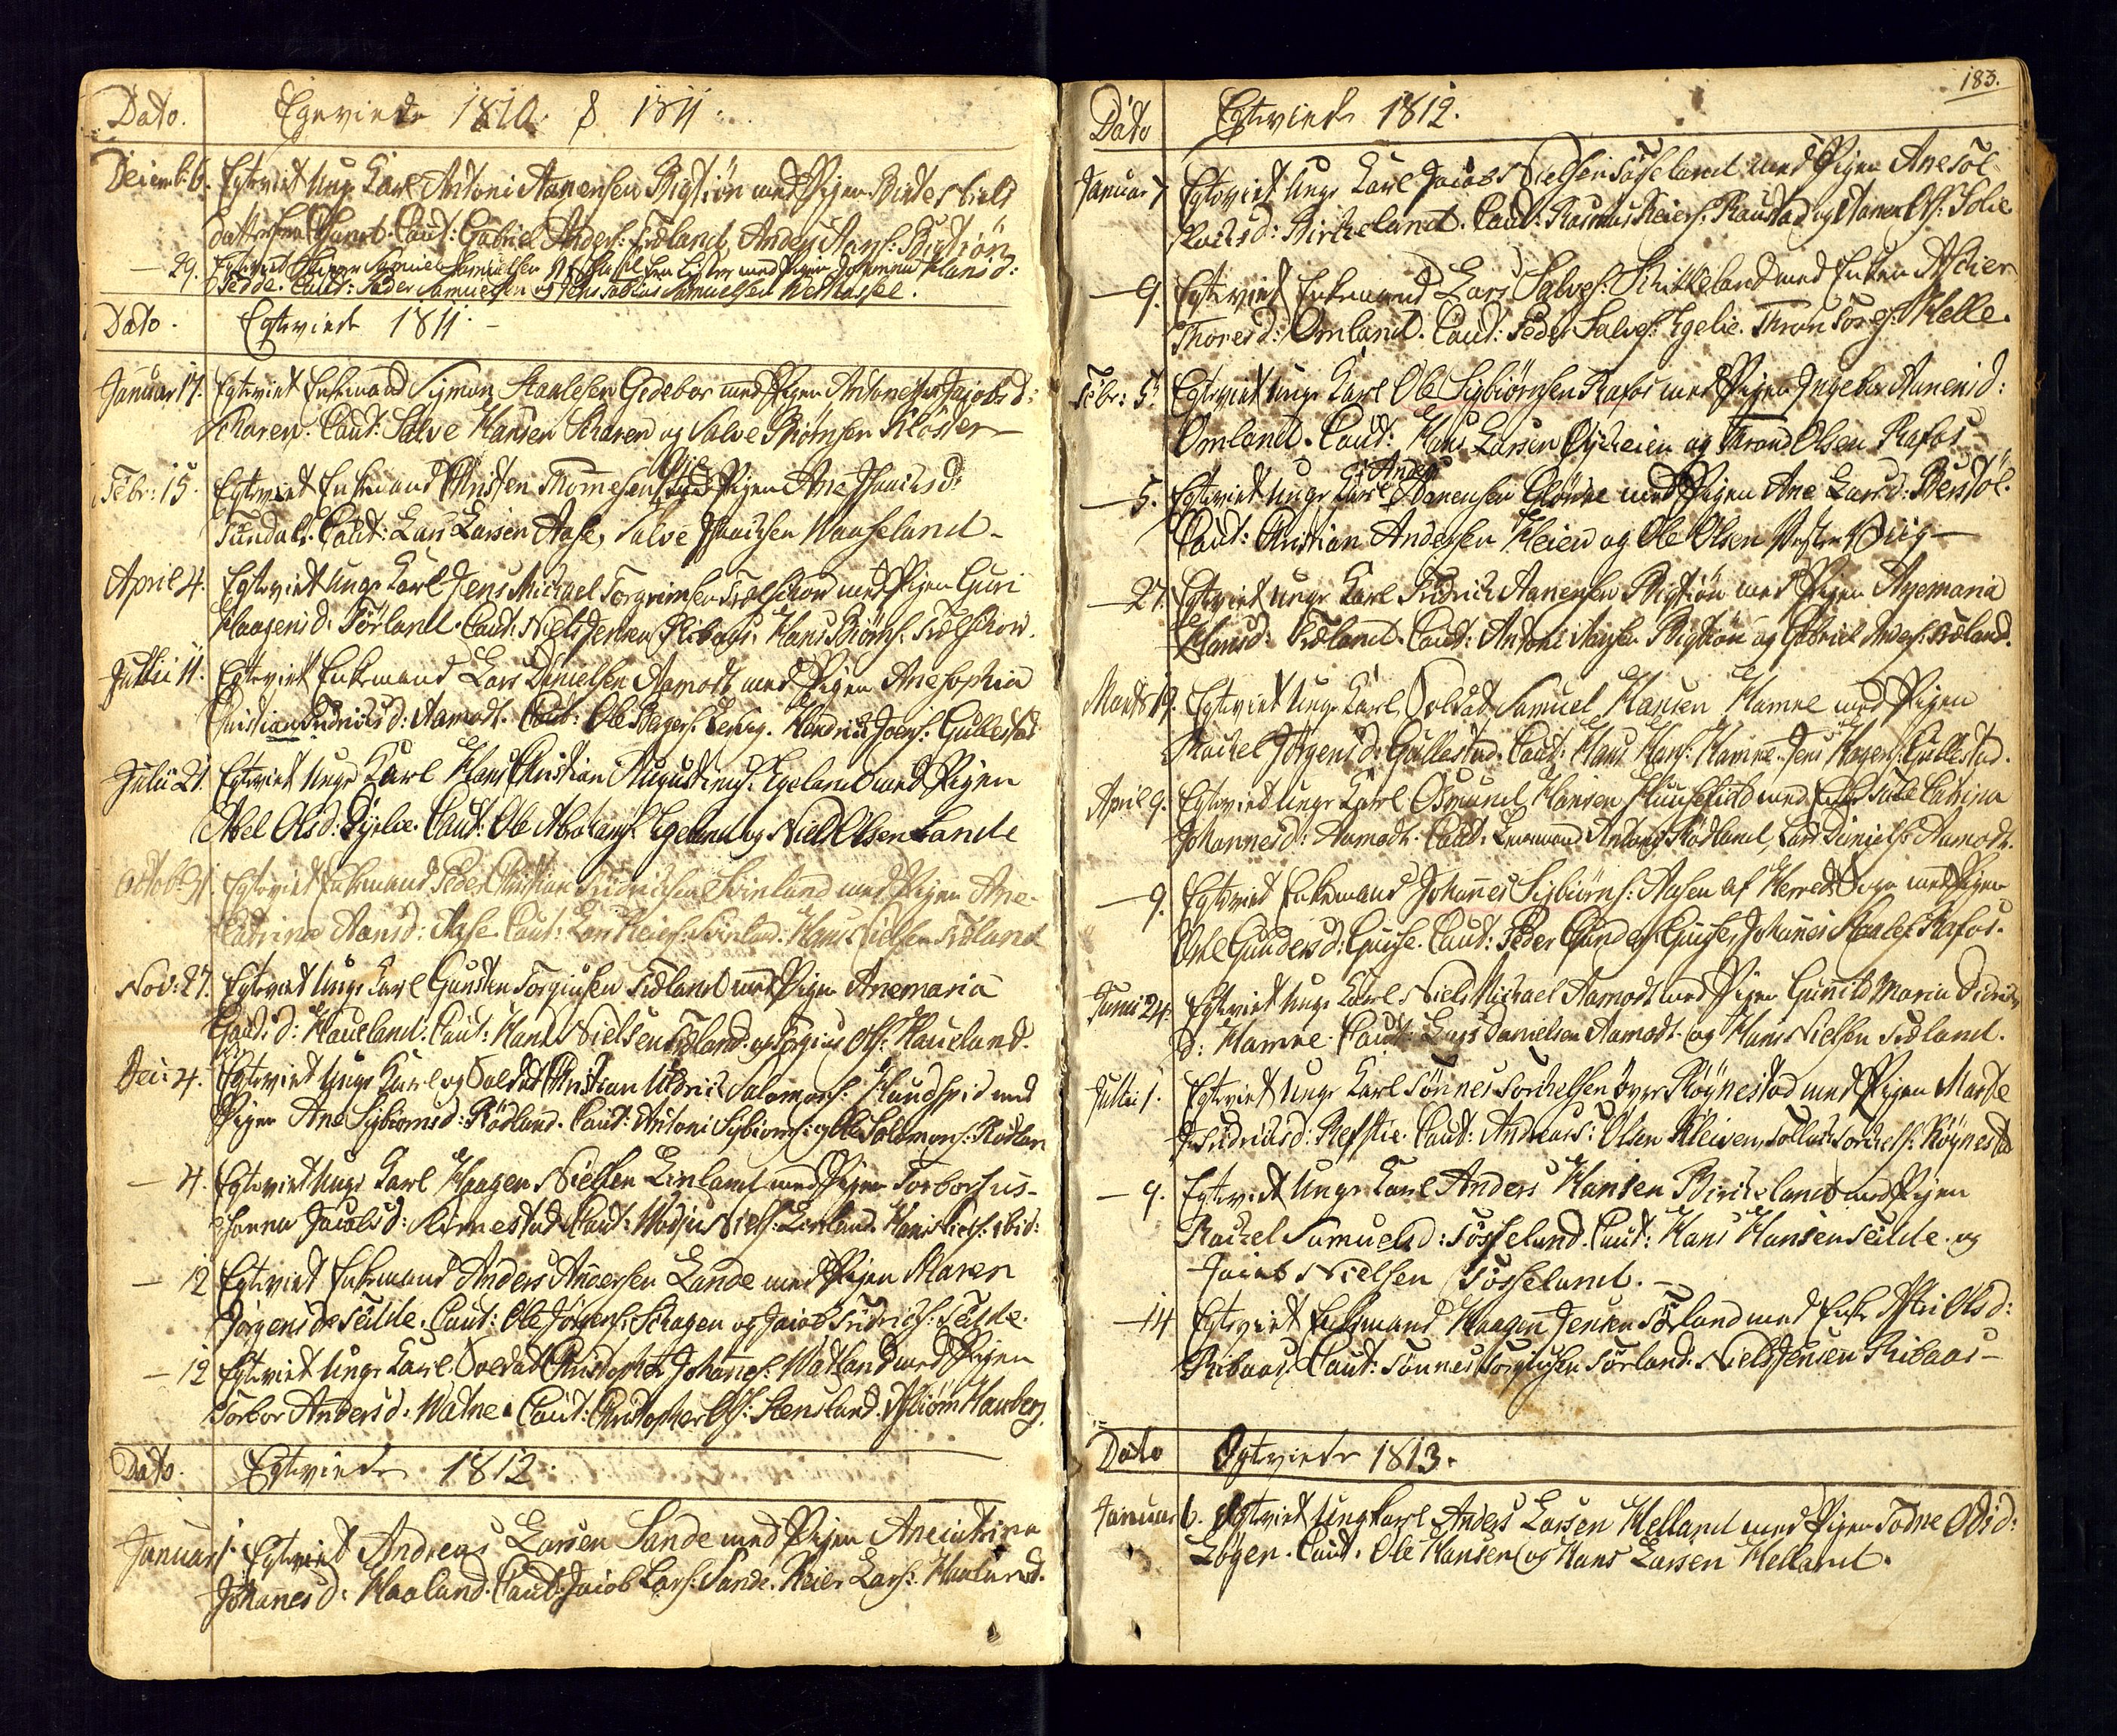 Dato. Egteviede 1810 & 1811.
Decemb: 6. Egteviet Unge Karl Antoni Aanensen Bigtiøn med Pigen Birte Niels
datter Caut: Gabriel Anders: Fidland, Anders Aans: Bigtiøn
— 29. Egteviet Samuel Samuelsen af Lister med Pigen Johanna Hansd:
Fedde. Caut: Peder Samuelsen og Jens Tobias Samuelsen
Dato. Egteviede 1811. –
Januar 17. Egteviet Enkemand Sigmon Staalesen Gedebor med Pigen Antonette Jacobsd:
Scharen. Caut: Salve Hansen Scharen og Salve Biørnsen Kloster –
Febr: 15. Egteviet Enkemand Christen Thommesen med Pigen Ane Isaachsd:
Sundal. Caut: Lars Larsen Aase, Salve Isaachsen Haaseland –
April 4. Egteviet Unge Karl Jens Michael Torgrimsen Trelschow med Pigen Guri
Haagensd: Sørland. Caut: Niels Jensen Ribaas. Hans Biørns: Trelschow.
Julii 11. Egteviet Enkemand Lars Danielsen Aamodt med Pigen Anesophia
Christian Fridrichsd: Aamodt. Caut: Ole Hendrich Joens: Gullestad
Julii 21. Egteviet Unge Karl Hans Christian Augustinus: Egeland med Pigen
Abel Olsd: Caut: Ole Abrahams: Egeland og Niels Olsen Lande
Octob: 31. Egteviet Enkemand Peder Christian Fridrichsen Svinland med Pigen Ane-
Catrina Aansd: Aase. Caut: Lars Reiers: Svinland. Hans Nielsen Fidland
Nov: 27. Egteviet Unge Karl Gunsten Torgiusen Fidland med Pigen Anemaria
Gaudsd: Haueland. Caut: Hans Nielsen Fidland og Torgius Ols: Haueland.
Dec: 4. Egteviet Unge Karl og Soldat Christian Uldrich Salomons: med
Pigen Ane Sigbiornsd: Rødland. Caut: Antoni Sigbiorns: og Ole Salomons: Rødlan
— 4. Egteviet Unge Karl Haagen Nielsen Linland med Pigen Torbor Sus-
hanna Jacobsd: Kirnestad. Caut: Niels: Linland. Hans Niels: ibid:
— 12 Egteviet Enkemand Anders Andersen Lande med Pigen Maren
Jørgensd: Tedde. Caut: Ole Jørgens: Schagen og Jacob Fridrichs: Tedde.
— 12 Egteviet Unge Karl Soldat Christopher Johannes: Watland med Pigen
Torbor Andersd: Watne. Caut: Christopher Ols: Stensland. Hauberg.
Dato. Egteviede 1812.
Januar 1. Egteviet Andreas Larsen Sande med Pigen Anecatrina
Johanesd: Haaland. Caut: Jacob Lars: Sande. Reier Lars: Haaland.
183.
Dato Egteviede 1812.
Januar 7 Egteviet Unge Karl Jacob Nielsen Tosseland med Pigen Anesøl-
Birkeland. Caut: Rasmus Reiers: Raustad og Aanen Ols: Solie
— 9. Egteviet Enkemand Lars Salves: Schikkeland med Enken Aschier
Thoresd: Omland. Caut: Peder Salves: Egelie. Thron Tores: Helle.
Febr: 5. Egteviet Unge Karl Ole Sigbiørnsen Rafos med Pigen Ingebor Aanensd:
Omland. Caut: Hans Larsen Øycheien og Thrond Olsen Rafos –
Anders
— 5. Egteviet Unge Karl Aanensen med Pigen Ane Larsd: Berstøl.
Caut: Christian Andersen Heien og Ole Olsen
— 27. Egteviet Unge Karl Fridrich Aanensen Bigtiøn med Pigen Ayemaria
Hansd: Fidland. Caut: Antoni Aansen Bigtiøn og Gabriel Anders: Fidland.
Marts 19. Egteviet Unge Karl Soldat Samuel Hansen Hamre med Pigen
Rachel Jørgensd: Gullestad. Caut: Hans Hans: Hamre. Jens Gullestad.
April 9. Egteviet Unge Karl Osmund Hansen med Catrina
Johannesd: Aamodt. Caut: Rødland, Lars Daniels: Aamodt.
— 9. Egteviet Enkemand Johannes Sigbiørns: Aasen af Herrads Sogn med Pigen
Gundersd: Guse. Caut: Peder Gunders: Guse, Johannes Staales: Rafos.
Junii 24. Egteviet Unge Karl Niels Michael Aamodt med Pigen Gunild Maria Didrichs
d: Hamre. Caut: Lars Danielsen Aamodt og Hans Nielsen Fidland.
Julii 1. Egteviet Unge Karl Tønnes Torchelsen øvre Røynestad med Pigen Marte
Fridrichsd: Refstie. Caut: Andreas: Olsen Kleiven, Tollach Torchels: Røynestad
— 9. Egteviet Unge Karl Anders Hansen Birkeland med Pigen
Rachel Samuelsd: Tosseland. Caut: Hans Hansen Tedde. og
Jacob Nielsen Tosseland. –
— 14 Egteviet Enkemand Haagen Jensen Sørland med Enke Olsd:
Ribaas. Caut: Tønnes Torgiusen Sørland. Niels Jensen Ribaas –
Dato Egteviede 1813.
Januar 6. Egteviet Ungkarl Anders Larsen Helland med Pigen Todne Olsd:
Løgen. Caut. Ole Hansen og Hans Larsen Helland.